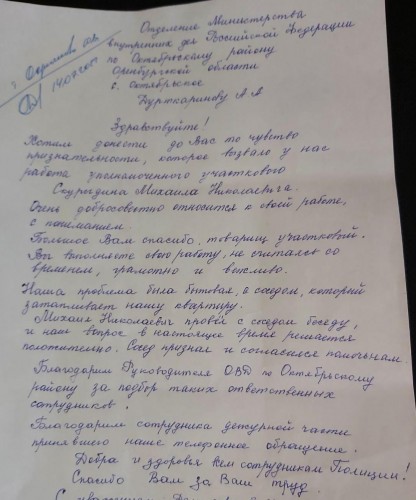 Отделение Министерства
внутренних дел Российской Федерации
по Октябрьскому району
Оренбургской области
с. Октябрьское
А.А
14.07.
Здравствуйте!
Хотим донести до Вас то чувство
признательности, которое вызвало у нас
работа уполномоченного участкового
Михаила Николаевича.
Очень добросовестно относится к своей работе,
с пониманием.
Большое Вам спасибо, товарищ участковый.
Вы выполняете свою работу, не считаясь со
временем, грамотно и вежливо.
Наша проблема была бытовая, с соседом, который
затапливает нашу квартиру.
Михаил Николаевич провёл с соседом беседу,
и наш вопрос в настоящее время решается
положительно. Сосед признал и согласился
Благодарим Руководителя ОВД по Октябрьскому
району за подбор таких ответственных
сотрудников.
Благодарим сотрудника дежурной части
принявшего наше телефонное обращение.
Добра и здоровья всем сотрудникам Полиции!
Спасибо Вам за Ваш труд.